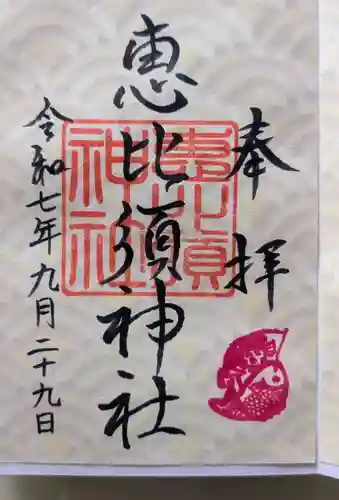 奉拝
恵比須神社
令和七年九月二十九日
恵比須
神社